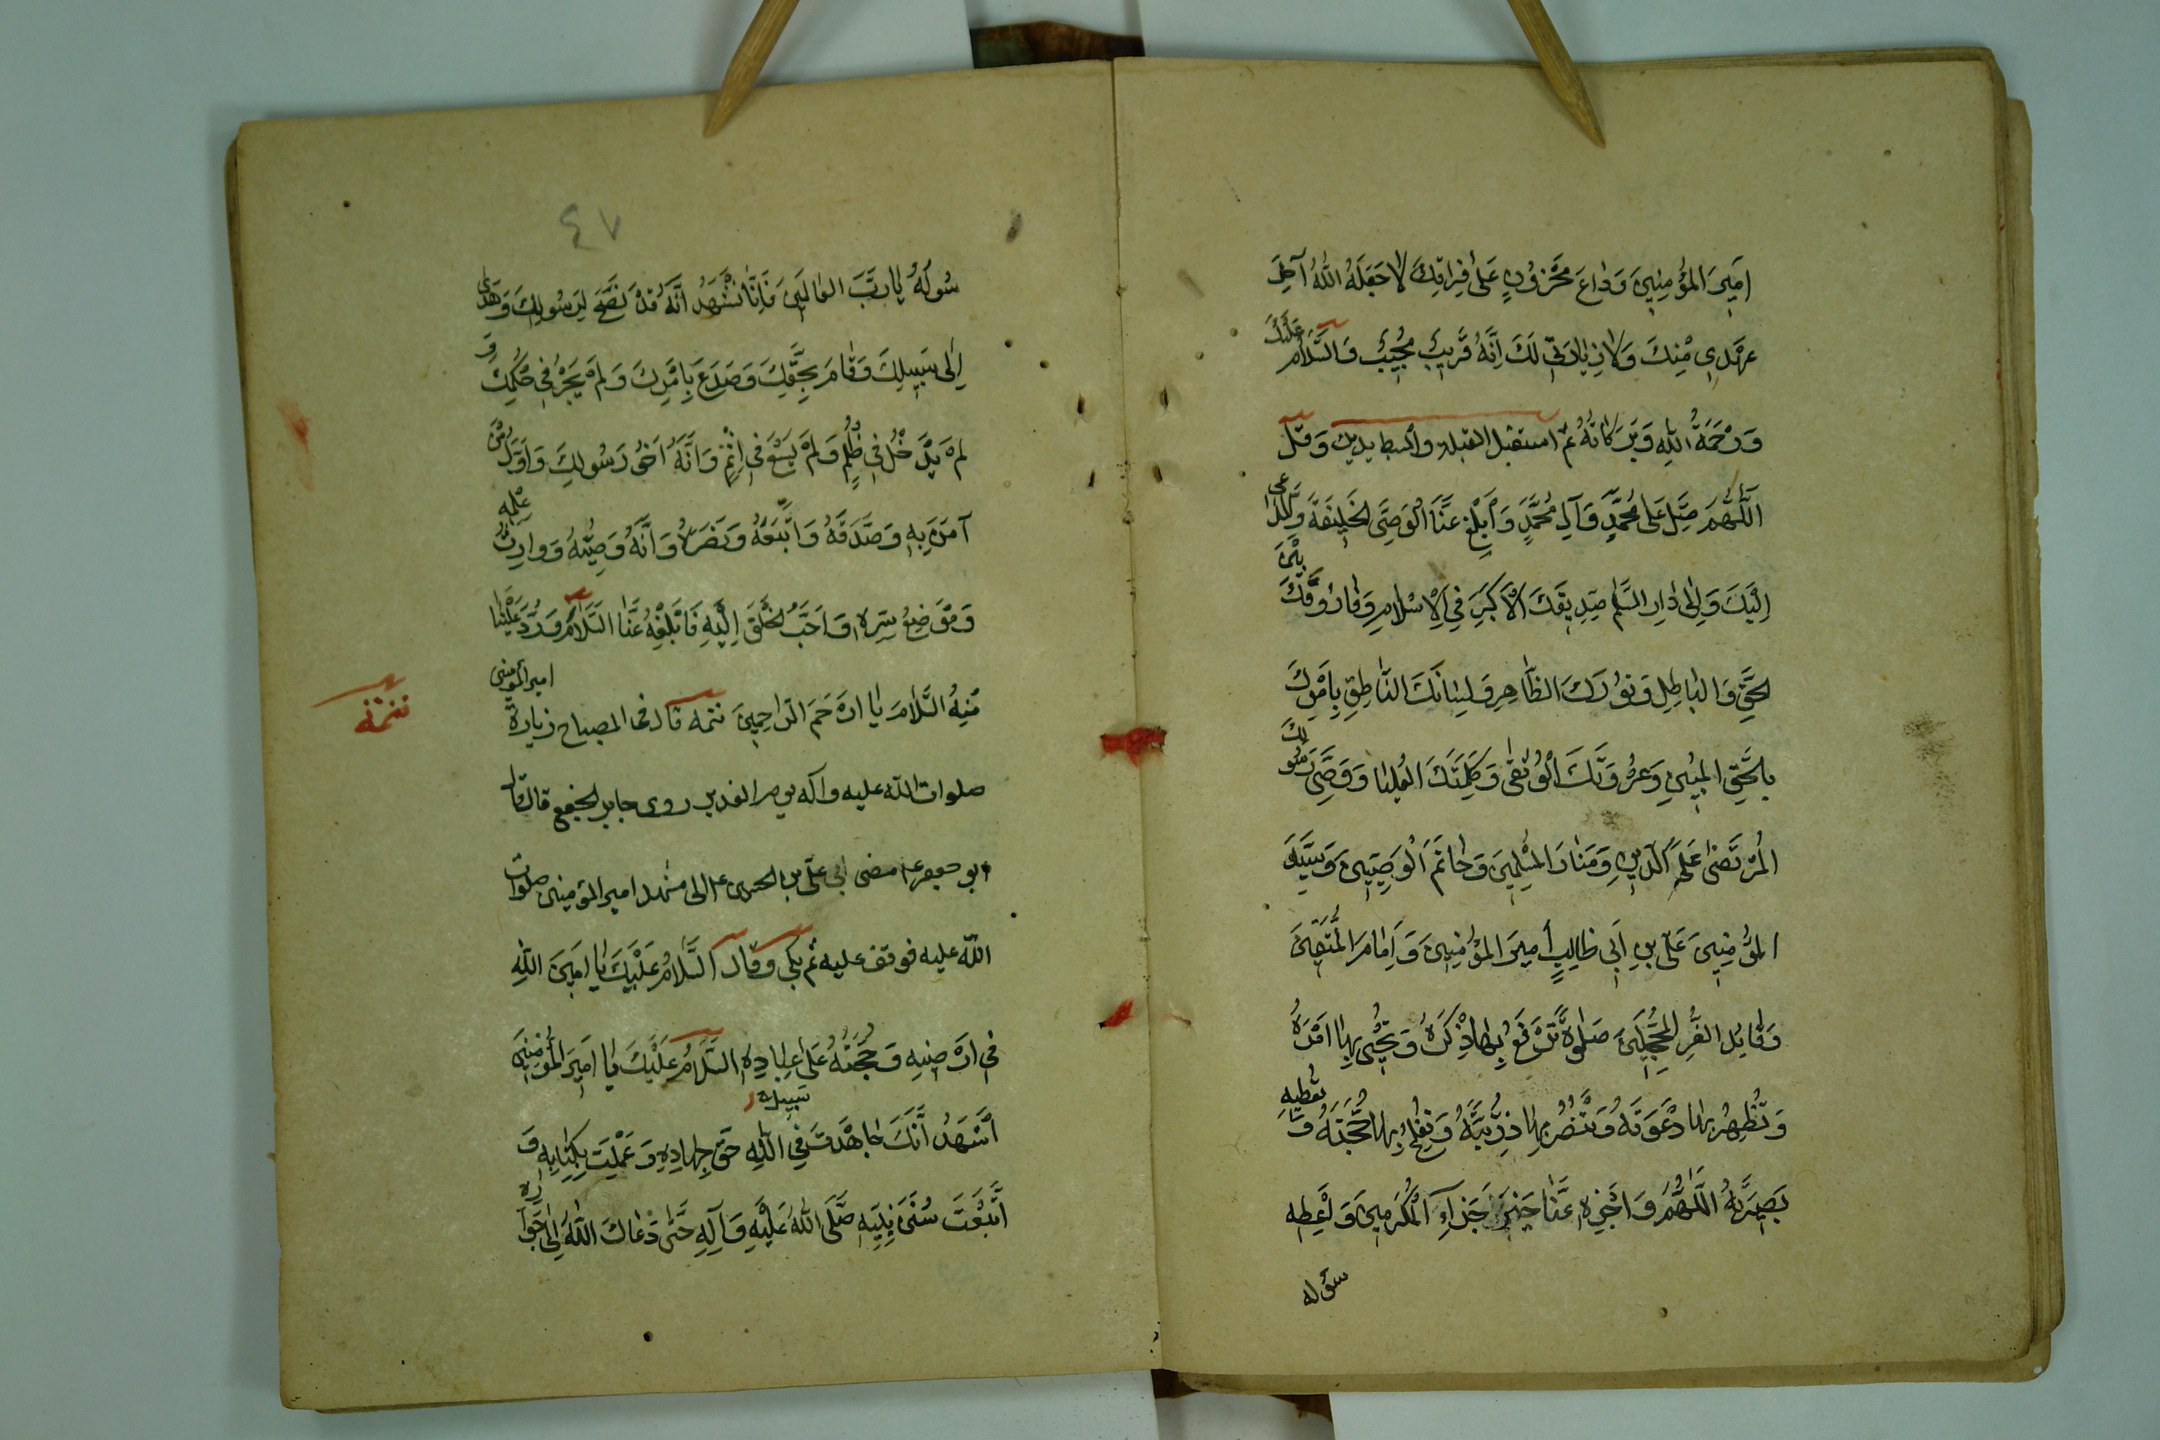 اَمِيرَ الْمُؤْمِنِينَ وَدَاعَ مَحْزُونٍ عَلَى فِرَاقِكَ لَا جَعَلَهُ اللهُ آخِرَ
عَهْدِي مِنْكَ وَلَا زِيَارَتِي لَكَ اِنَّهُ قَرِيبٌ مُجِيبٌ وَالسَّلَامُ عَلَيْكَ
وَرَحْمَةُ اللهِ وَبَرَكَاتُهُ ثم استقبل القبلة وابسط يديك وقل
اَللّٰهُمَّ صَلِّ عَلَى مُحَمَّدٍ وَآلِ مُحَمَّدٍ وَأَبْلِغْ عَنَّا الْوَصِيَّ الْخَلِيفَةَ وَالدَّاعِي
اِلَيْكَ وَاِلَى دَارِ السَّلَامِ صِدِّيقَكَ الْاَكْبَرَ فِي الْاِسْلَامِ وَفَارُوقَكَ بَيْنَ
الْحَقِّ وَالْبَاطِلِ وَنُورَكَ الظَّاهِرَ وَلِسَانَكَ النَّاطِقَ بِاَمْرِكَ
بِالْحَقِّ الْمُبِينِ وَعُرْوَتَكَ الْوُثْقَى وَكَلِمَتَكَ الْعُلْيَا وَوَصِيَّ رَسُولِكَ
الْمُرْتَضَى عَلَمَ الدِّينِ وَمَنَارَ الْمُسْلِمِينَ وَخَاتَمَ الْوَصِيِّينَ وَسَيِّدَ
الْمُؤْمِنِينَ عَلِيَّ بْنَ اَبِي طَالِبٍ أَمِيرَ الْمُؤْمِنِينَ وَاِمَامَ الْمُتَّقِينَ
وَقَائِدَ الْغُرِّ الْمُحَجَّلِينَ صَلٰوةً تَرْفَعُ بِهَا ذِكْرَهُ وَتُحْيِي بِهَا اَمْرَهُ
وَتُظْهِرُ بِهَا دَعْوَتَهُ وَتَنْصُرُ بِهَا ذُرِّيَّتَهُ وَتُفْلِجُ بِهَا حُجَّتَهُ وَتُعْطِيهِ
بَصِيرَتَهُ اَللّٰهُمَّ وَاجْزِهِ عَنَّا خَيْرَ جَزَآءِ الْمُكْرَمِينَ وَاَعْطِهِ
سؤله
٤٧
سُؤلَهُ يَا رَبَّ الْعَالَمِينَ فَاِنَّا نَشْهَدُ اَنَّهُ قَدْ نَصَحَ لِرَسُولِكَ وَهَدَى
اِلَى سَبِيلِكَ وَقَامَ بِحَقِّكَ وَصَدَعَ بِاَمْرِكَ وَلَمْ يَجُرْ فِي حُكْمِكَ وَ
لَمْ يَدْخُلْ فِي ظُلْمٍ وَلَمْ يَسْعَ فِي اِثْمٍ وَاَنَّهُ اَخُو رَسُولِكَ وَاَوَّلُ مَنْ
آمَنَ بِهِ وَصَدَّقَهُ وَاتَّبَعَهُ وَنَصَرَهُ وَاَنَّهُ وَصِيُّهُ وَوَارِثُ عِلْمِهِ
وَمَوْضِعُ سِرِّهِ وَاَحَبُّ الْخَلْقِ اِلَيْهِ فَاَبْلِغْهُ عَنَّا السَّلَامَ وَرُدَّ عَلَيْنَا
مِنْهُ السَّلَامَ يَا اَرْحَمَ الرَّاحِمِينَ تتمه قال فى المصباح زيارة امير المؤمنين
تتمه
صلوات الله عليه وآله يوم الغدير روى جابر الجعفي قال قال
ابو جعفر ع مضى ابي علي بن الحسين ع الى مشهد امير المؤمنين صلوات
الله عليه فوقف عليه ثم بكى وقال اَلسَّلَامُ عَلَيْكَ يَا اَمِينَ اللهِ
فِي اَرْضِهِ وَحُجَّتُهُ عَلَى عِبَادِهِ السَّلَامُ عَلَيْكَ يَا اَمِيرَ الْمُؤْمِنِينَ
اَشْهَدُ اَنَّكَ جَاهَدْتَ فِي اللهِ سَبِيلِهِ حَقَّ جِهَادِهِ وَعَمِلْتَ بِكِتَابِهِ وَ
اتَّبَعْتَ سُنَنَ نَبِيِّهِ صَلَّى اللهُ عَلَيْهِ وَآلِهِ حَتَّى دَعَاكَ اللهُ اِلَى جِوَارِهِ